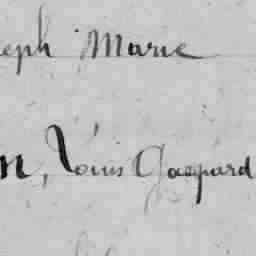 eph Marie
n, Louis Gaspard